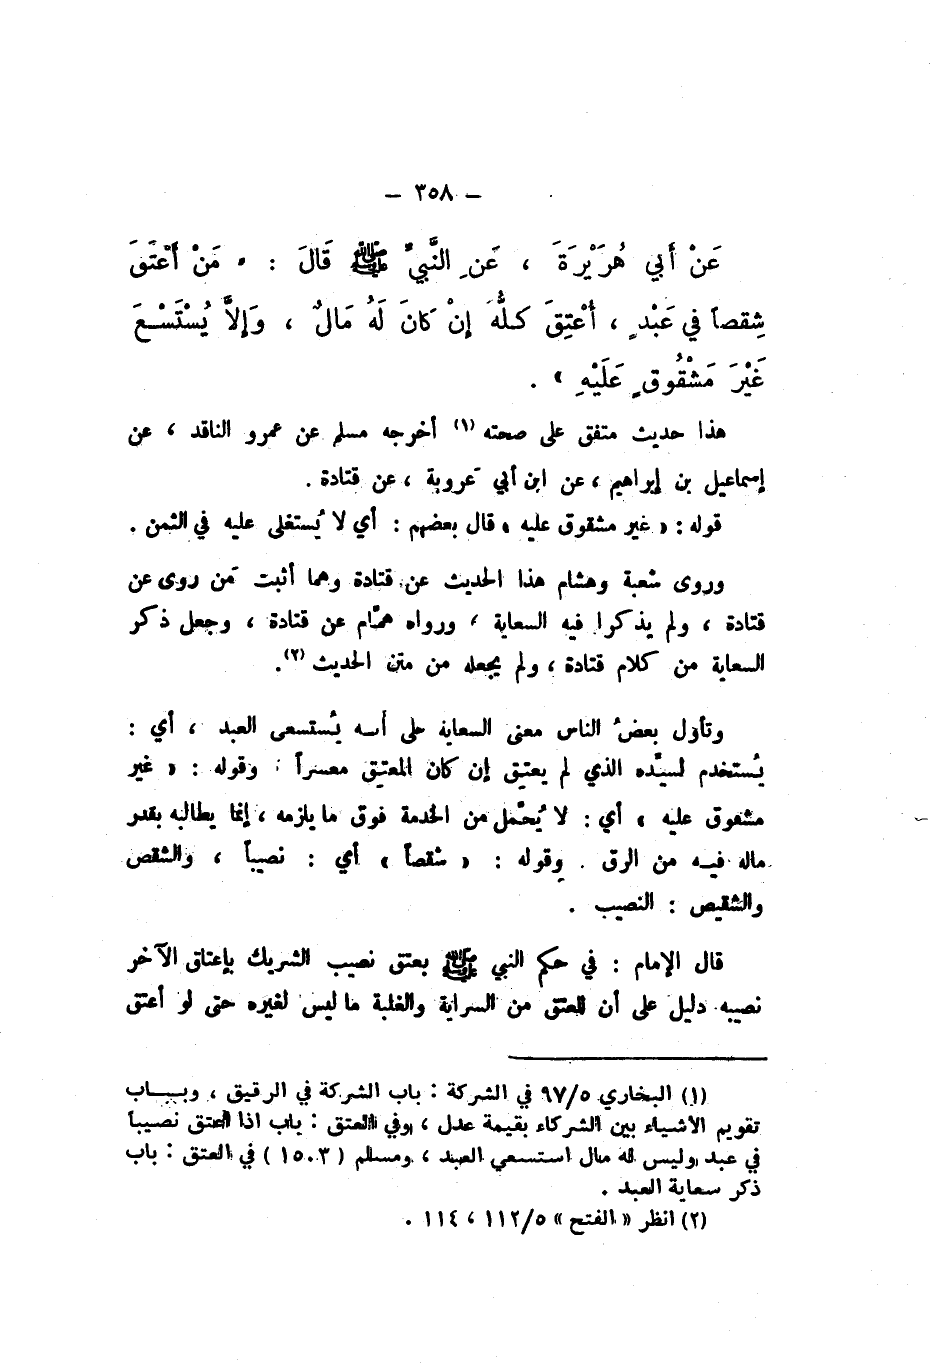 – ٣٥٨ –
عَنْ أَبي هُرَيْرَةَ ، عَنِ النَّبيِّ ﷺ قَالَ : « مَنْ أَعْتَقَ
شِقصاً في عَبْدٍ ، أُعْتِقَ كلُّهُ إنْ كَانَ لَهُ مَالٌ ، وَإلاَّ يُسْتَسْعَ
غَيْرَ مَشْقُوقٍ عَلَيْهِ » .
هذا حديث متفق على صحته (١) أخرجه مسلم عن عمرو الناقد ، عن
إسماعيل بن إبراهيم ، عن ابن أبي عَروبة ، عن قتادة .
قوله : « غير مشقوق عليه » قال بعضهم : أي لا يُستغلى عليه في الثمن .
وروى شعبة وهشام هذا الحديث عن قتادة وهما أثبت مَن روى عن
قتادة ، ولم يذكرا فيه السعاية ، ورواه همَّام عن قتادة ، وجعل ذكر
السعاية من كلام قتادة ، ولم يجعله من متن الحديث (٢) .
وتأول بعضُ الناس معنى السعاية على أنه يُستسعى العبد ، أي :
يُستخدم لسيِّده الذي لم يعتِق إن كان المعتِق معسراً ، وقوله : « غير
مشقوق عليه » أي : لا يُحمَّل من الخدمة فوق ما يلزمه ، إنما يطالبه بقدر
ماله فيه من الرق . وقوله : « شقصاً » أي : نصيباً ، والشقص
والشقيص : النصيب .
قال الإمام : في حكم النبي ﷺ بعتق نصيب الشريك بإعتاق الآخر
نصيبه دليل على أن للعتق من السراية والغلبة ما ليس لغيره حتى لو أعتق
(١) البخاري ٩٧/٥ في الشركة : باب الشركة في الرقيق ، وبـــاب
تقويم الأشياء بين الشركاء بقيمة عدل ، وفي العتق : باب اذا أعتق نصيباً
في عبد وليس له مال استسعي العبد ، ومسلم ( ١٥٠٣ ) في العتق : باب
ذكر سعاية العبد .
(٢) انظر « الفتح » ١١٢/٥ ، ١١٤ .